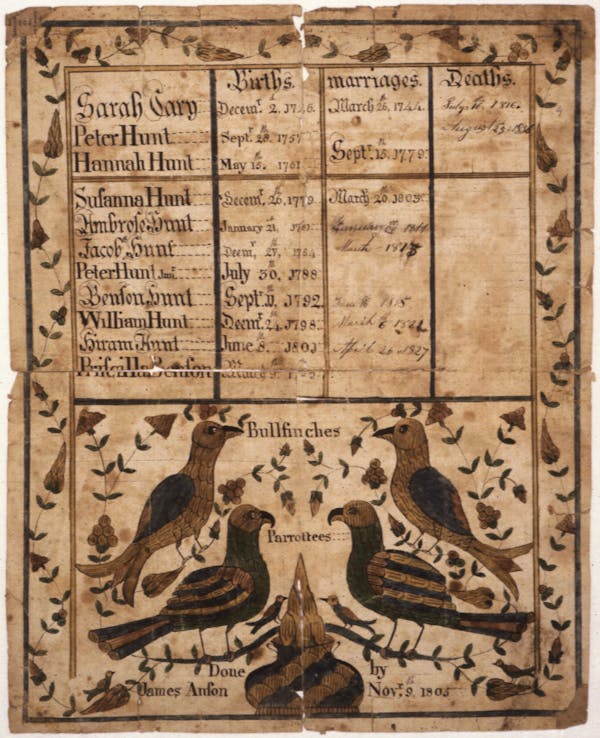 Births. marriages. Deaths.
Sarah Cary Decemr 2. 1746. March 26, 1744. July 16. 1816.
August 23
Peter Hunt Septr 28. 1757
Hannah Hunt May 15. 1761 Septr 15. 1779.
Susanna Hunt Decemr 26, 1779 March 20. 1803.
Ambrose Hunt January 21, 1814
Jacob Hunt Decemr 27, 1784 March 1813
Peter Hunt Junr July 30. 1788
Benson Hunt Septr 11, 1792 1815
William Hunt Decmr 24, 1798. March 6 1821
Hiram Hunt June 8. 1801 April 26 1827
Priscilla Benson
Bullfinches
Parrottees
Done by
James Anson Novr 9. 1805